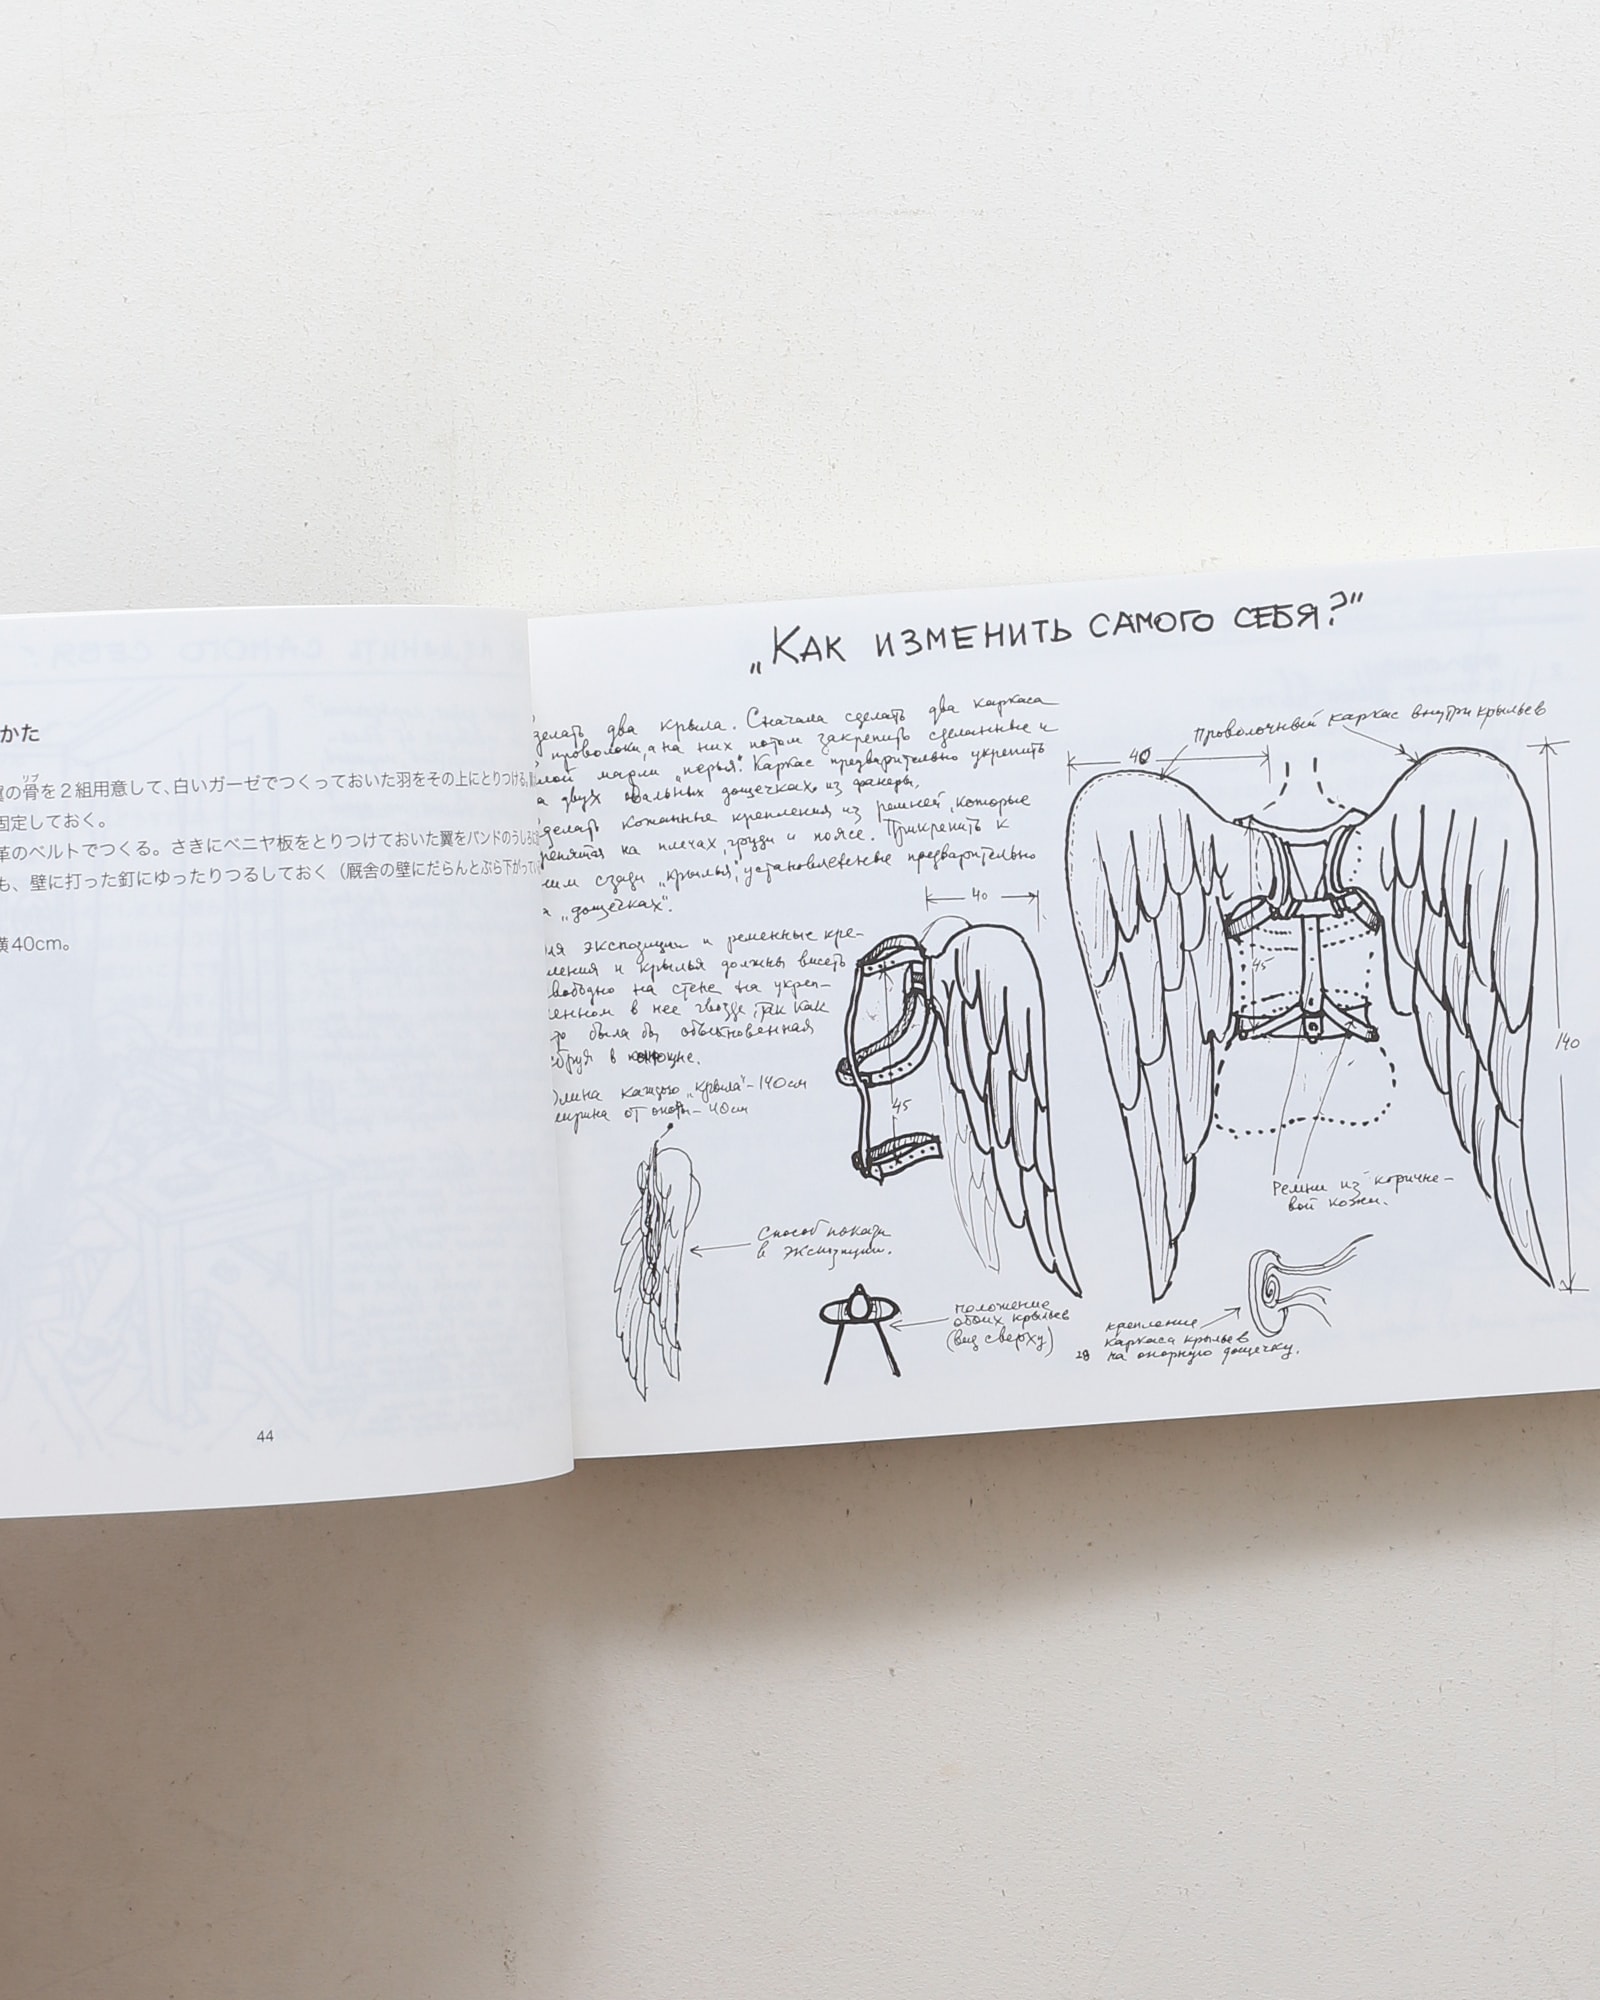 かた
の骨を２組用意して、白いガーゼでつくっておいた羽をその上にとりつける。
固定しておく。
革のベルトでつくる。さきにベニヤ板をとりつけておいた翼をバンドのうしろに
も、壁に打った釘にゆったりつるしておく（厩舎の壁にだらんとぶら下がってい
横40cm。
44
„Как изменить самого себя?"
делать два крыла. Сначала сделать два каркаса
проволоки, а на них потом закрепить сделанные и
лой марли „перья". Каркас предварительно укрепить
а двух овальных дощечках из фанеры.
делать кожанные крепления из ремней, которые
репятся на плечах, груди и поясе. Прикрепить к
ним сзади „крылья", установленные предварительно
а „дощечках".
ля экспозиции и ременные кре-
ления и крылья должны висеть
вободно на стене на укреп-
ленном в нее гвозде, так как
то была бы обыкновенная
сбруя в конюшне.
Длина каждого „крыла" - 140 см
ширина от опоры - 40 см
40
45
Способ показа
в экспозиции.
положение
обоих крыльев
(вид сверху)
Проволочный каркас внутри крыльев
40
45
140
Ремни из коричне-
вой кожи.
крепление
каркаса крыльев
на опорную дощечку.